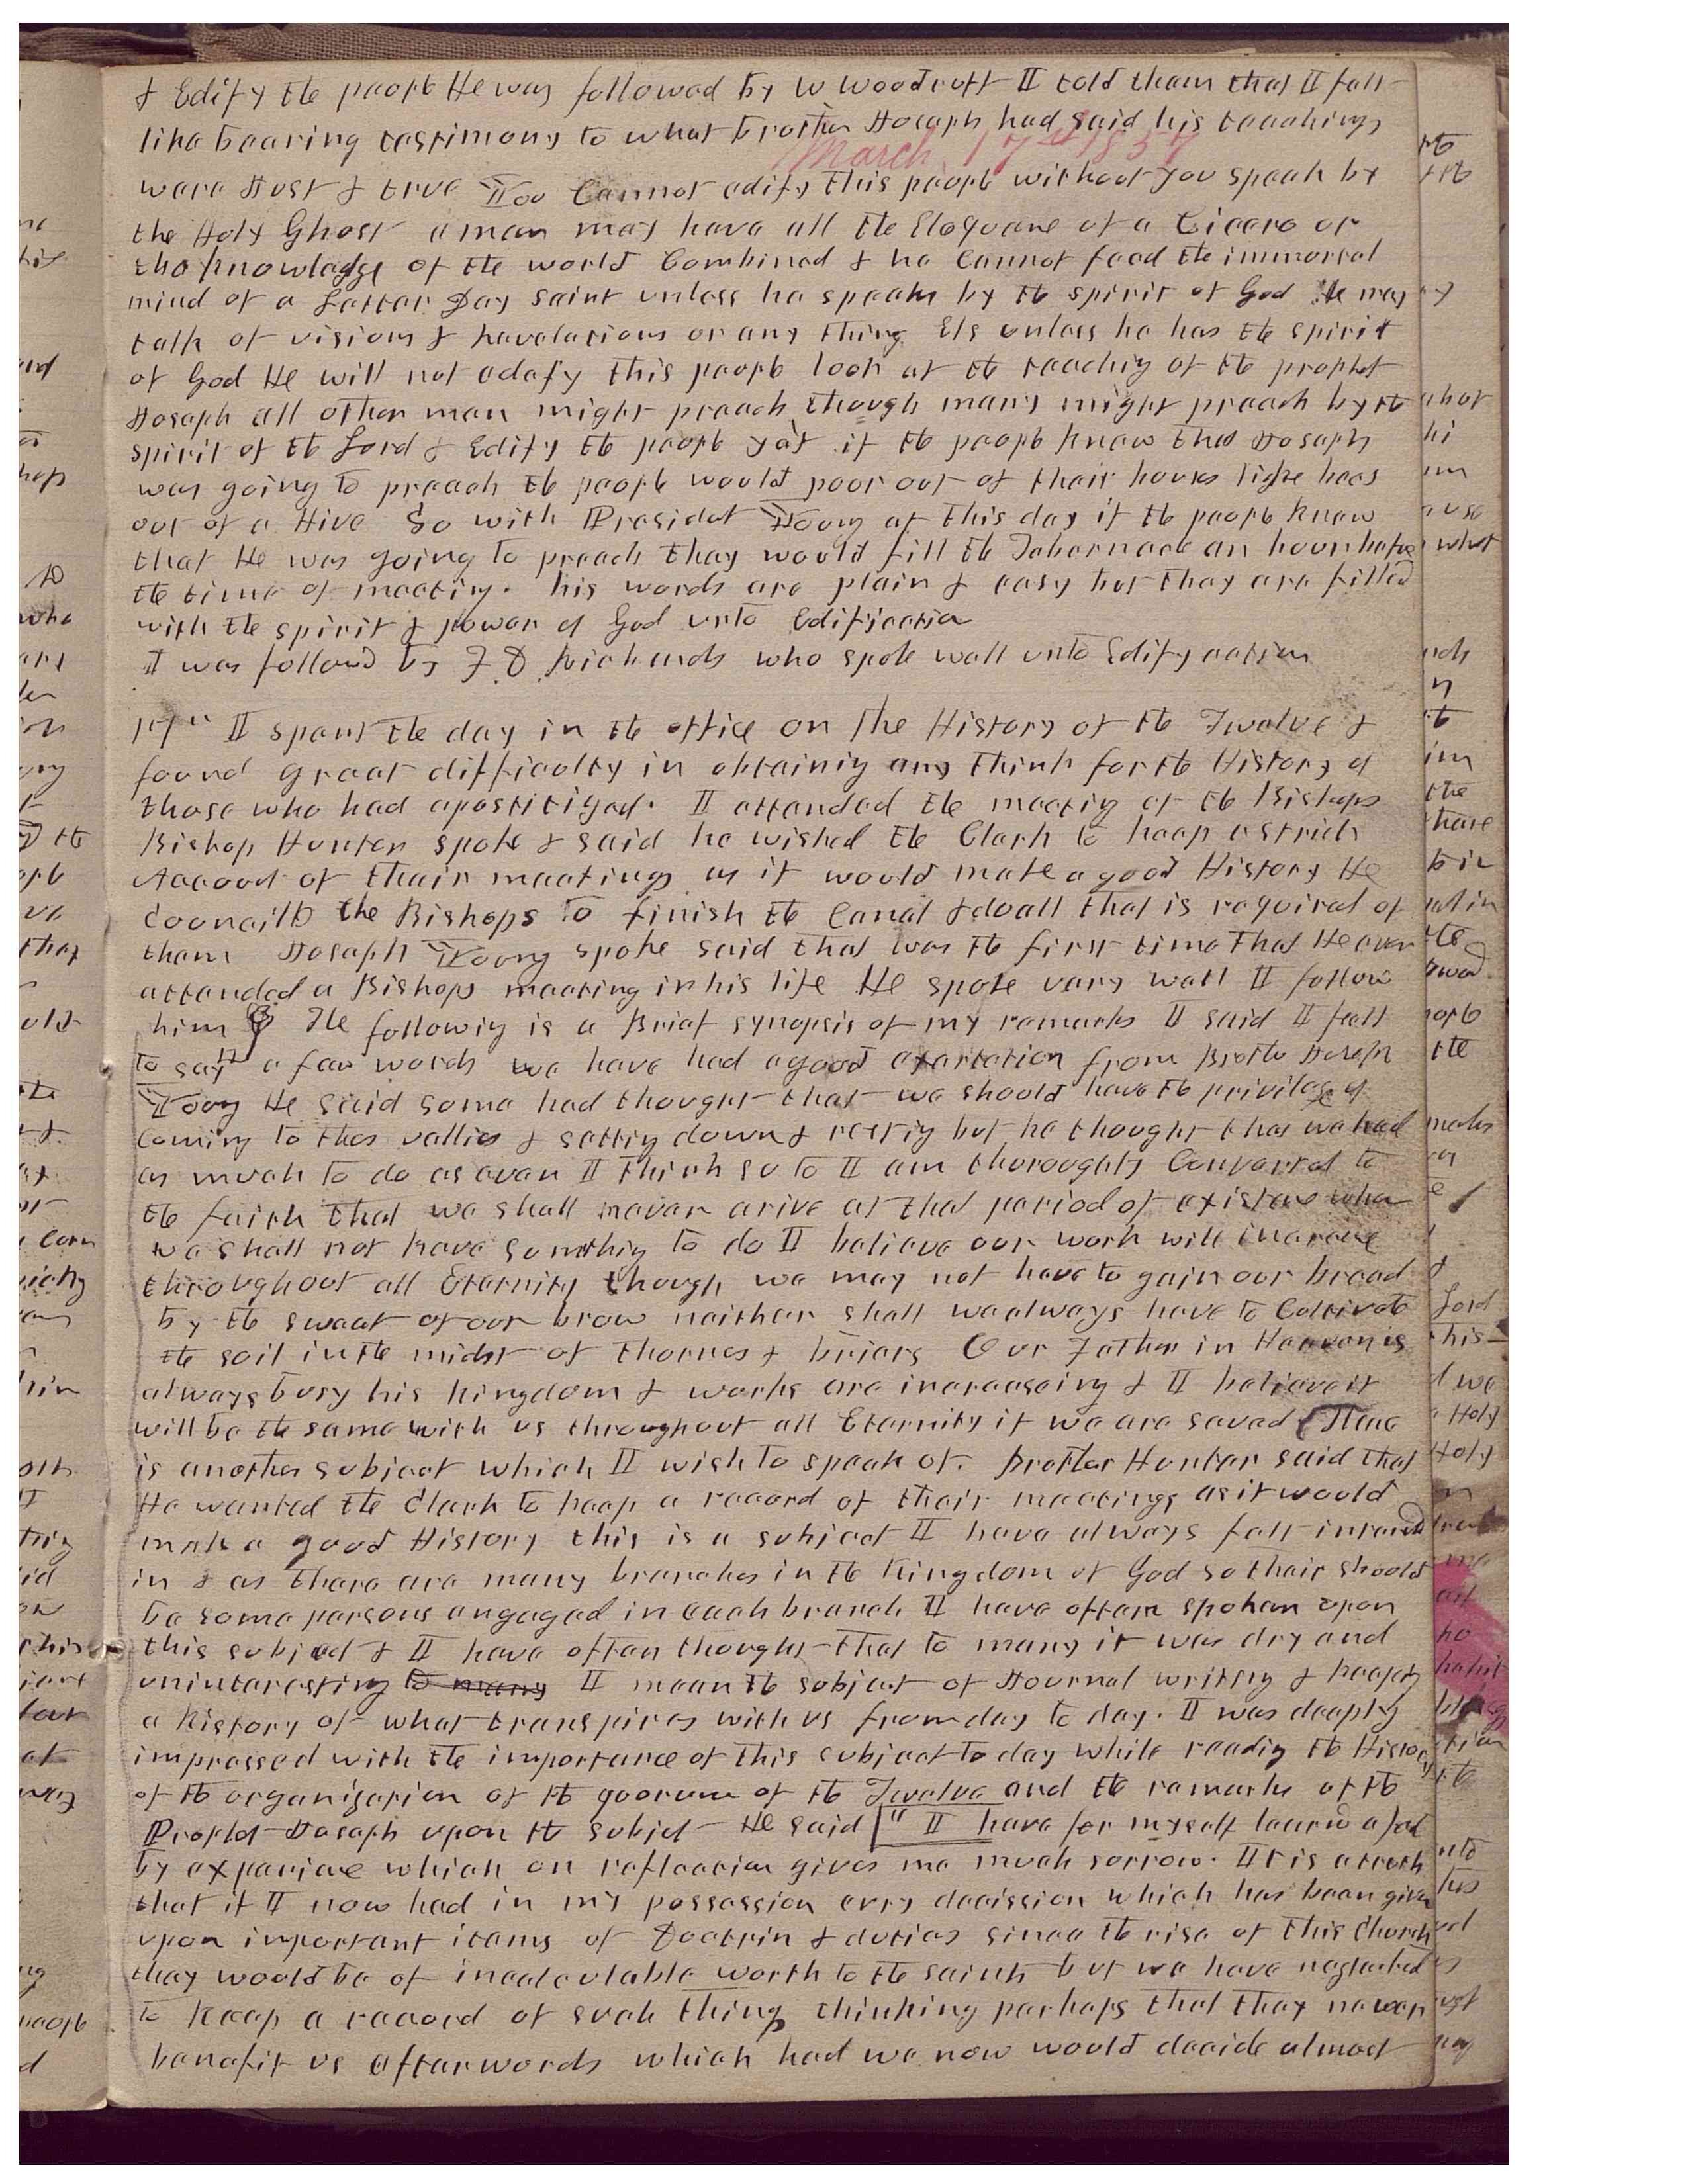 & Edify the people He was followed by W Woodruff I told them that I felt
like bearing testimony to what brother Joseph had said his teachings
March 17th 1857
were Just & true You Cannot edify this people without you speak by
the Holy Ghost a man may have all the Eloquane of a Cicero or
the knowladge of the world Combined & he Cannot feed the immortal
mind of a Latter Day Saint unless he speaks by the spirit of God He may
talk of visions & Revelations or any thing Els unless he has the spirit
of God He will not edafy this people look at the teachig of the prophet
Joseph all other men might preach though many might preach by the
spirit of the Lord & Edify the people yet if the people knew that Joseph
was going to preach the people would poor out of their houses like bees
out of a Hive So with Presidet Young at this day if the people knew
that He was going to preach they would fill the Tabernacle an hour before
the time of meetig. his words are plain & easy but they are filled
with the spirit & power of God unto Edification
I was followed by F D Richards who spoke well unto Edifycation
17th I spent the day in the office on The History of the Twelve &
found great difficulty in obtainig any think for the History of
those who had apostitized. I attended the meetig of the Bishops
Bishop Hunter spoke & said he wished the Clerk to keep a strick
Account of their meetings as it would make a good History He
Councilld the Bishops to finish the Canal & do all that is required of
them Joseph Young spoke said that was the first time that He ever
attended a Bishops meeting in his life He spoke very well I follow
him The followig is a Brief synopsis of my remarks I said I felt
to say a few words we have had a good exortation from Brother Joseph
Young He said some had thought that we should have the privilege of
coming to thes vallies & settig down & restig but he thought that we had
as much to do as ever I think so to I am thoroughly Converted to
the faith that we shall never arive at that period of existane when
we shall not have somethig to do I believe our work will increase
throughout all Eternity though we may not have to gain our bread
by the sweat of our brow neither shall we always have to Cultivate
the soil in the midst of thornes & briars Our Father in Heaven is
always busy his kingdom & works are increaseing & I believe it
will be the same with us throughout all Eternity if we are saved There
is another subject which I wish to speak of. Brother Hunter said that
He wanted the Clerk to keep a record of their meetings as it would
make a good History this is a subject I have always felt intrested
in & as there are many branches in the Kingdom of God so their should
be some persons engaged in each branch I have often spoken upon
this subject & I have often thought that to many it was dry and
uninteresting to many I mean the subject of Journal writing & keeping
a history of what transpires with us from day to day. I was deeply
impressed with the importance of this subject to day while readig the History
of the organization of the quorum of the Twelve and the remarks of the
Prophet Joseph upon the subjet He said "I have for myself learnd a fact
by experiene which on reflection gives me much sorrow. It is a truth
that if I now had in my possession evry decission which has been given
upon important items of Doctrin & duties since the rise of this Church
they would be of incalculable worth to the saints but we have neglected
to keep a record of such things thinking perhaps that they never
benefit us afterwords which had we now would decide almost